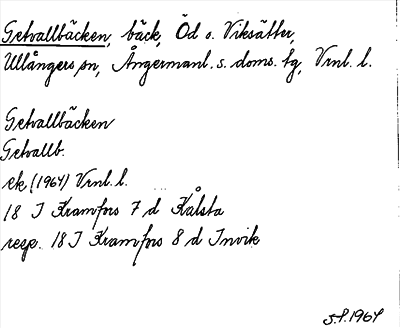 Getvallbäcken, bäck, Öd o. Viksätter,
Ullångers sn, Ångermanl. s. doms. tg, Vrnl. l.
Getvallbäcken
Getvallb.
ek (1964) Vrnl. l.
18 I Kramfors 7 d Kålsta
resp. 18 I Kramfors 8 d Invik
S.F. 1964